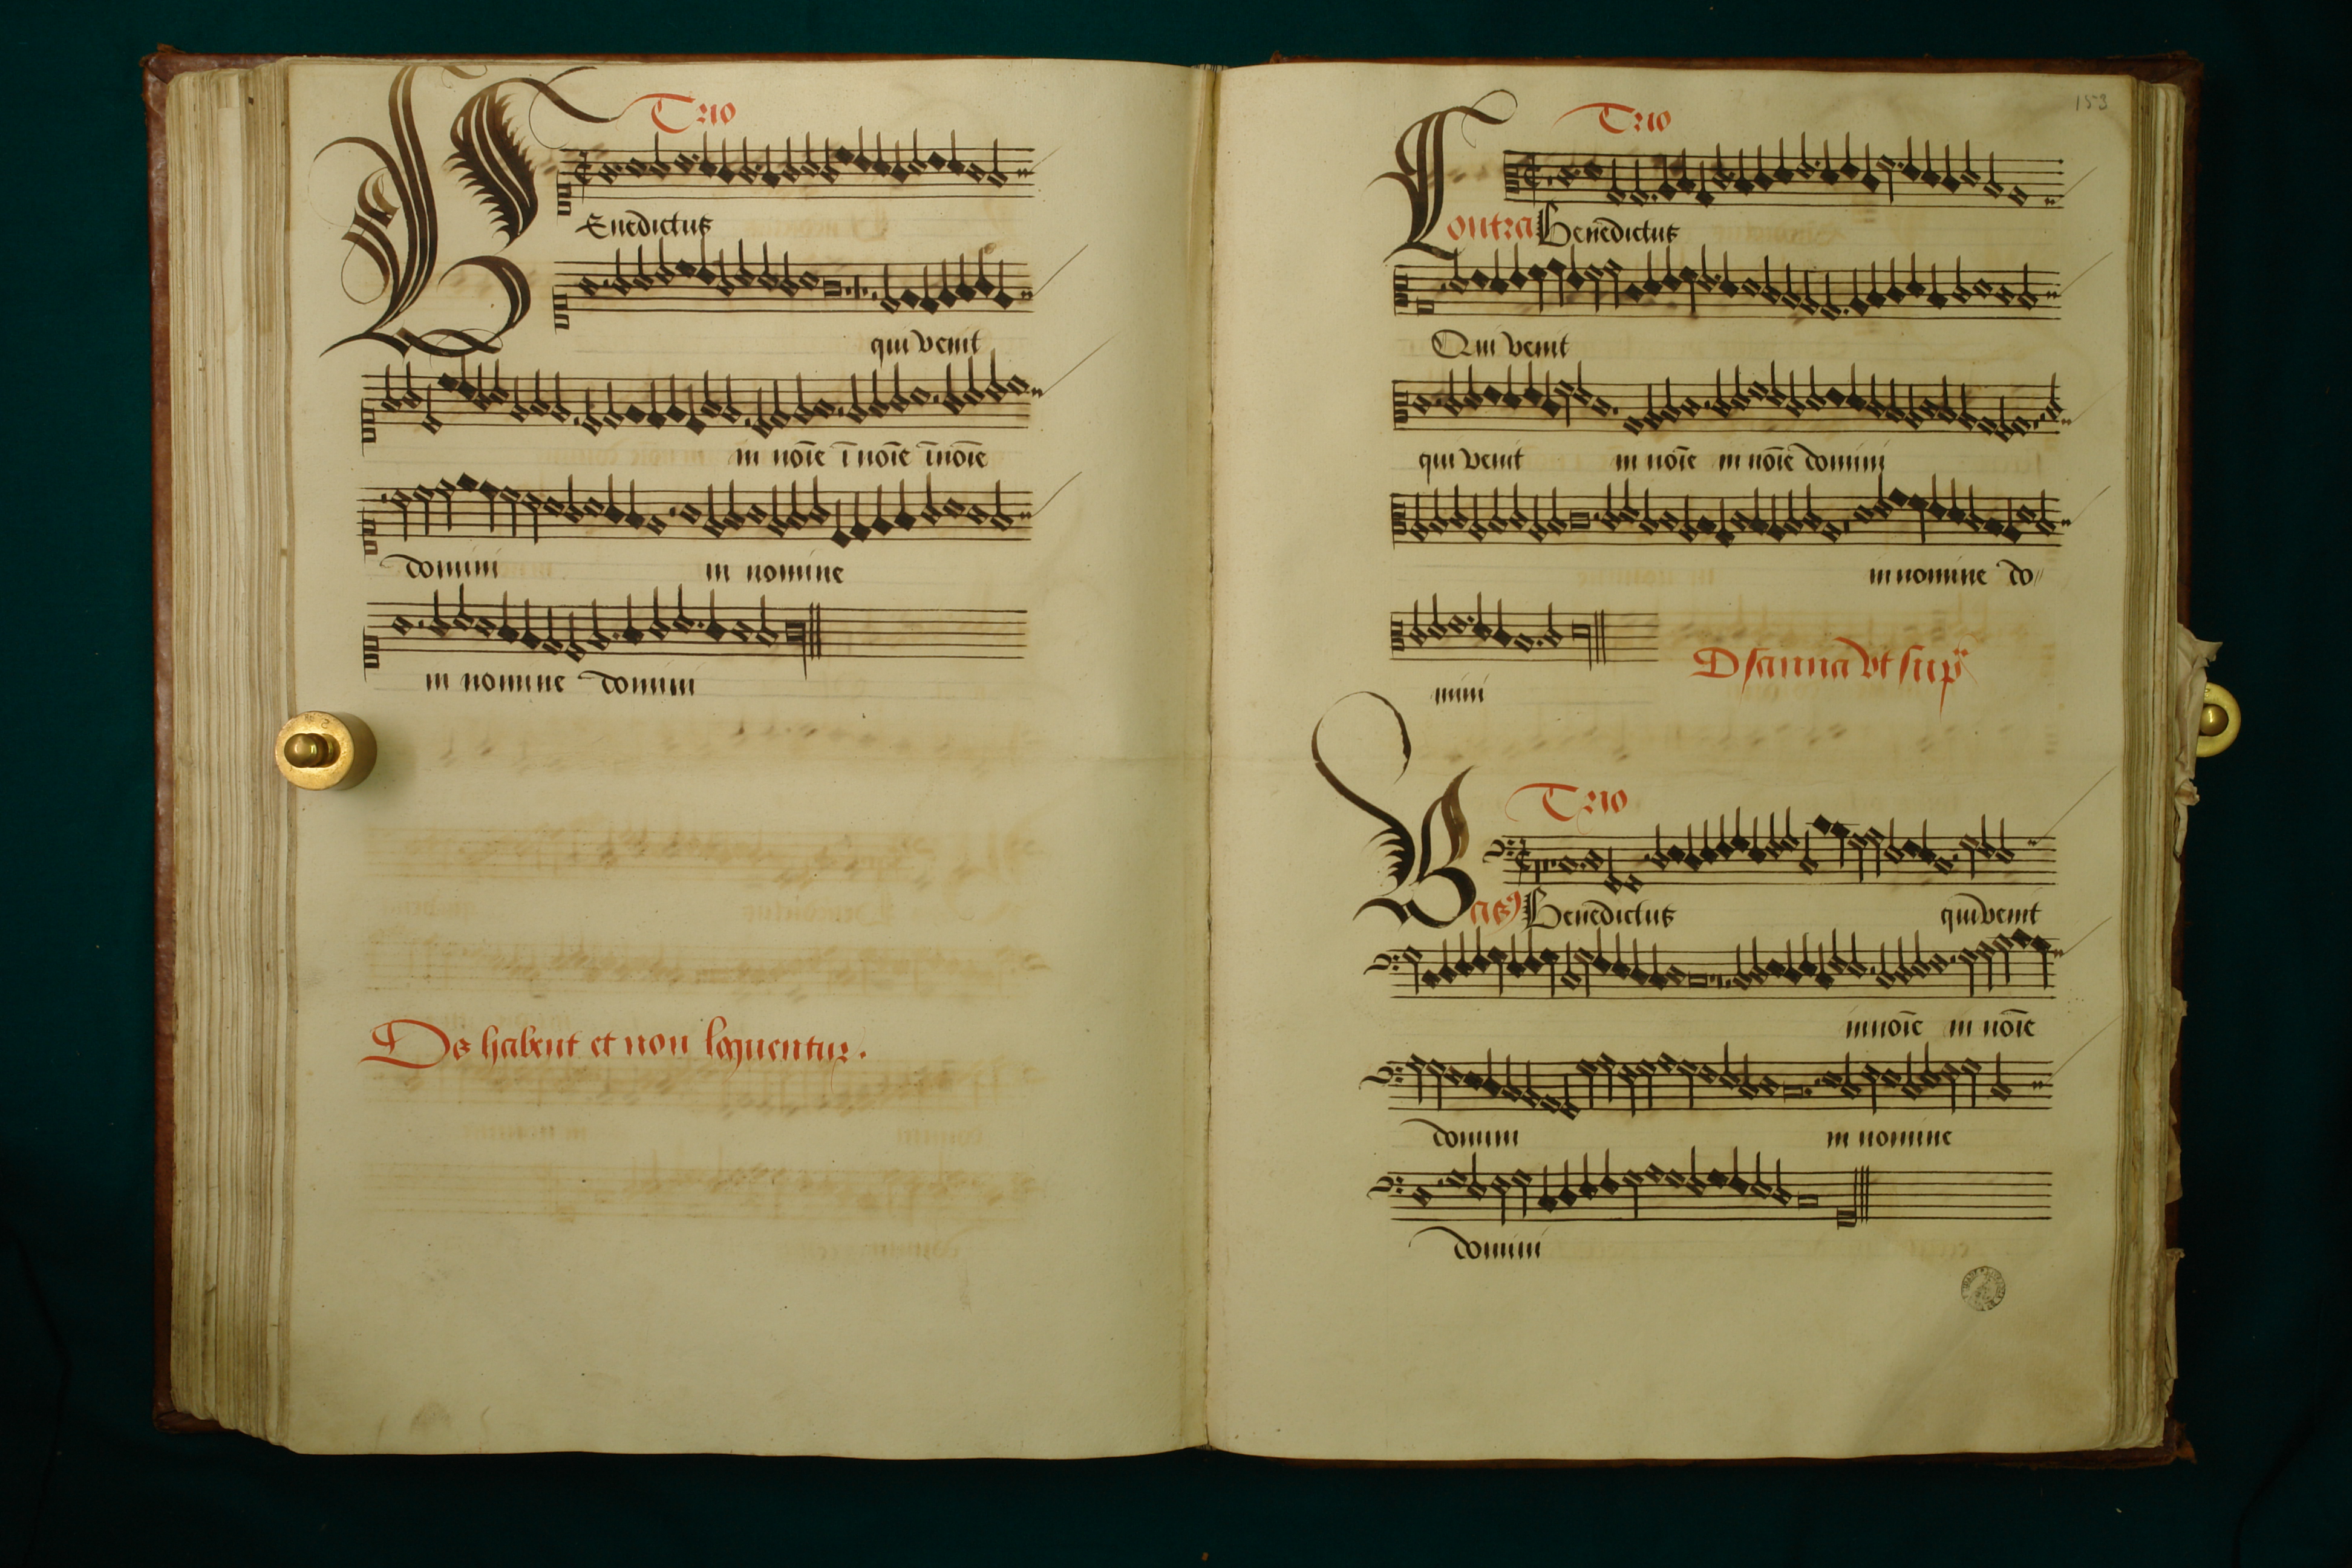 Trio
BEnedictus
qui venit
in noīe ī noīe īnoīe
domini in nomine
in nomine domini
Os habent et non loquentur.
153
Trio
Contra Benedictus
Qui venit
qui venit in noīe in noīe domini
in nomine do//
mini
Osanna vt sup
Trio
Bassꝯ Benedictus qui venit
in noīe in noīe
domini in nomine
domini